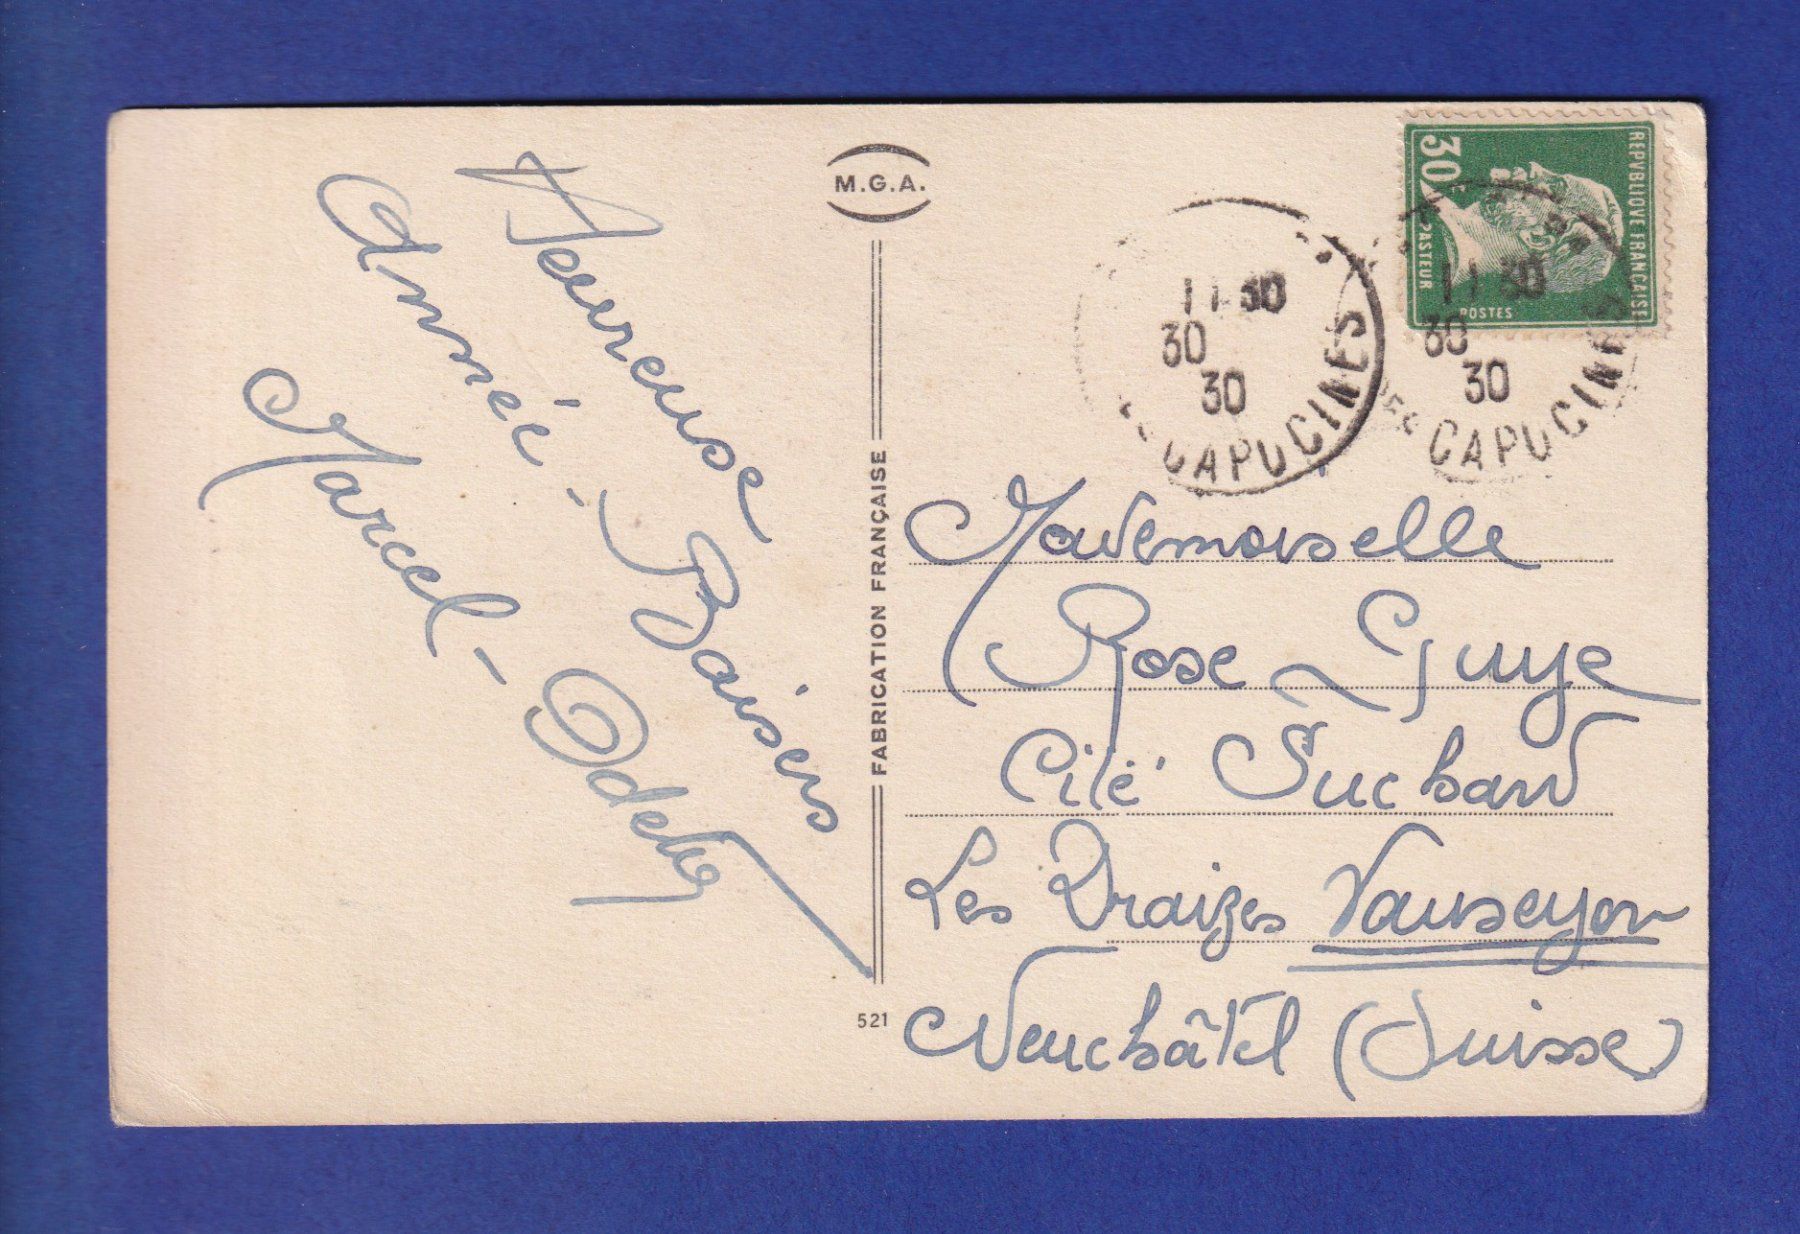 Heureuse
Année. Baisers
Marcel - Odette
M.G.A.
FABRICATION FRANÇAISE
521
REPVBLIQVE FRANÇAISE
30
PASTEUR
POSTES
11 30
30
30
CAPUCINES
11 30
30
30
CAPUCINES
Mademoiselle
Rose Guye
Cité Suchard
Les Draizes Vauseyon
Neuchâtel (Suisse)